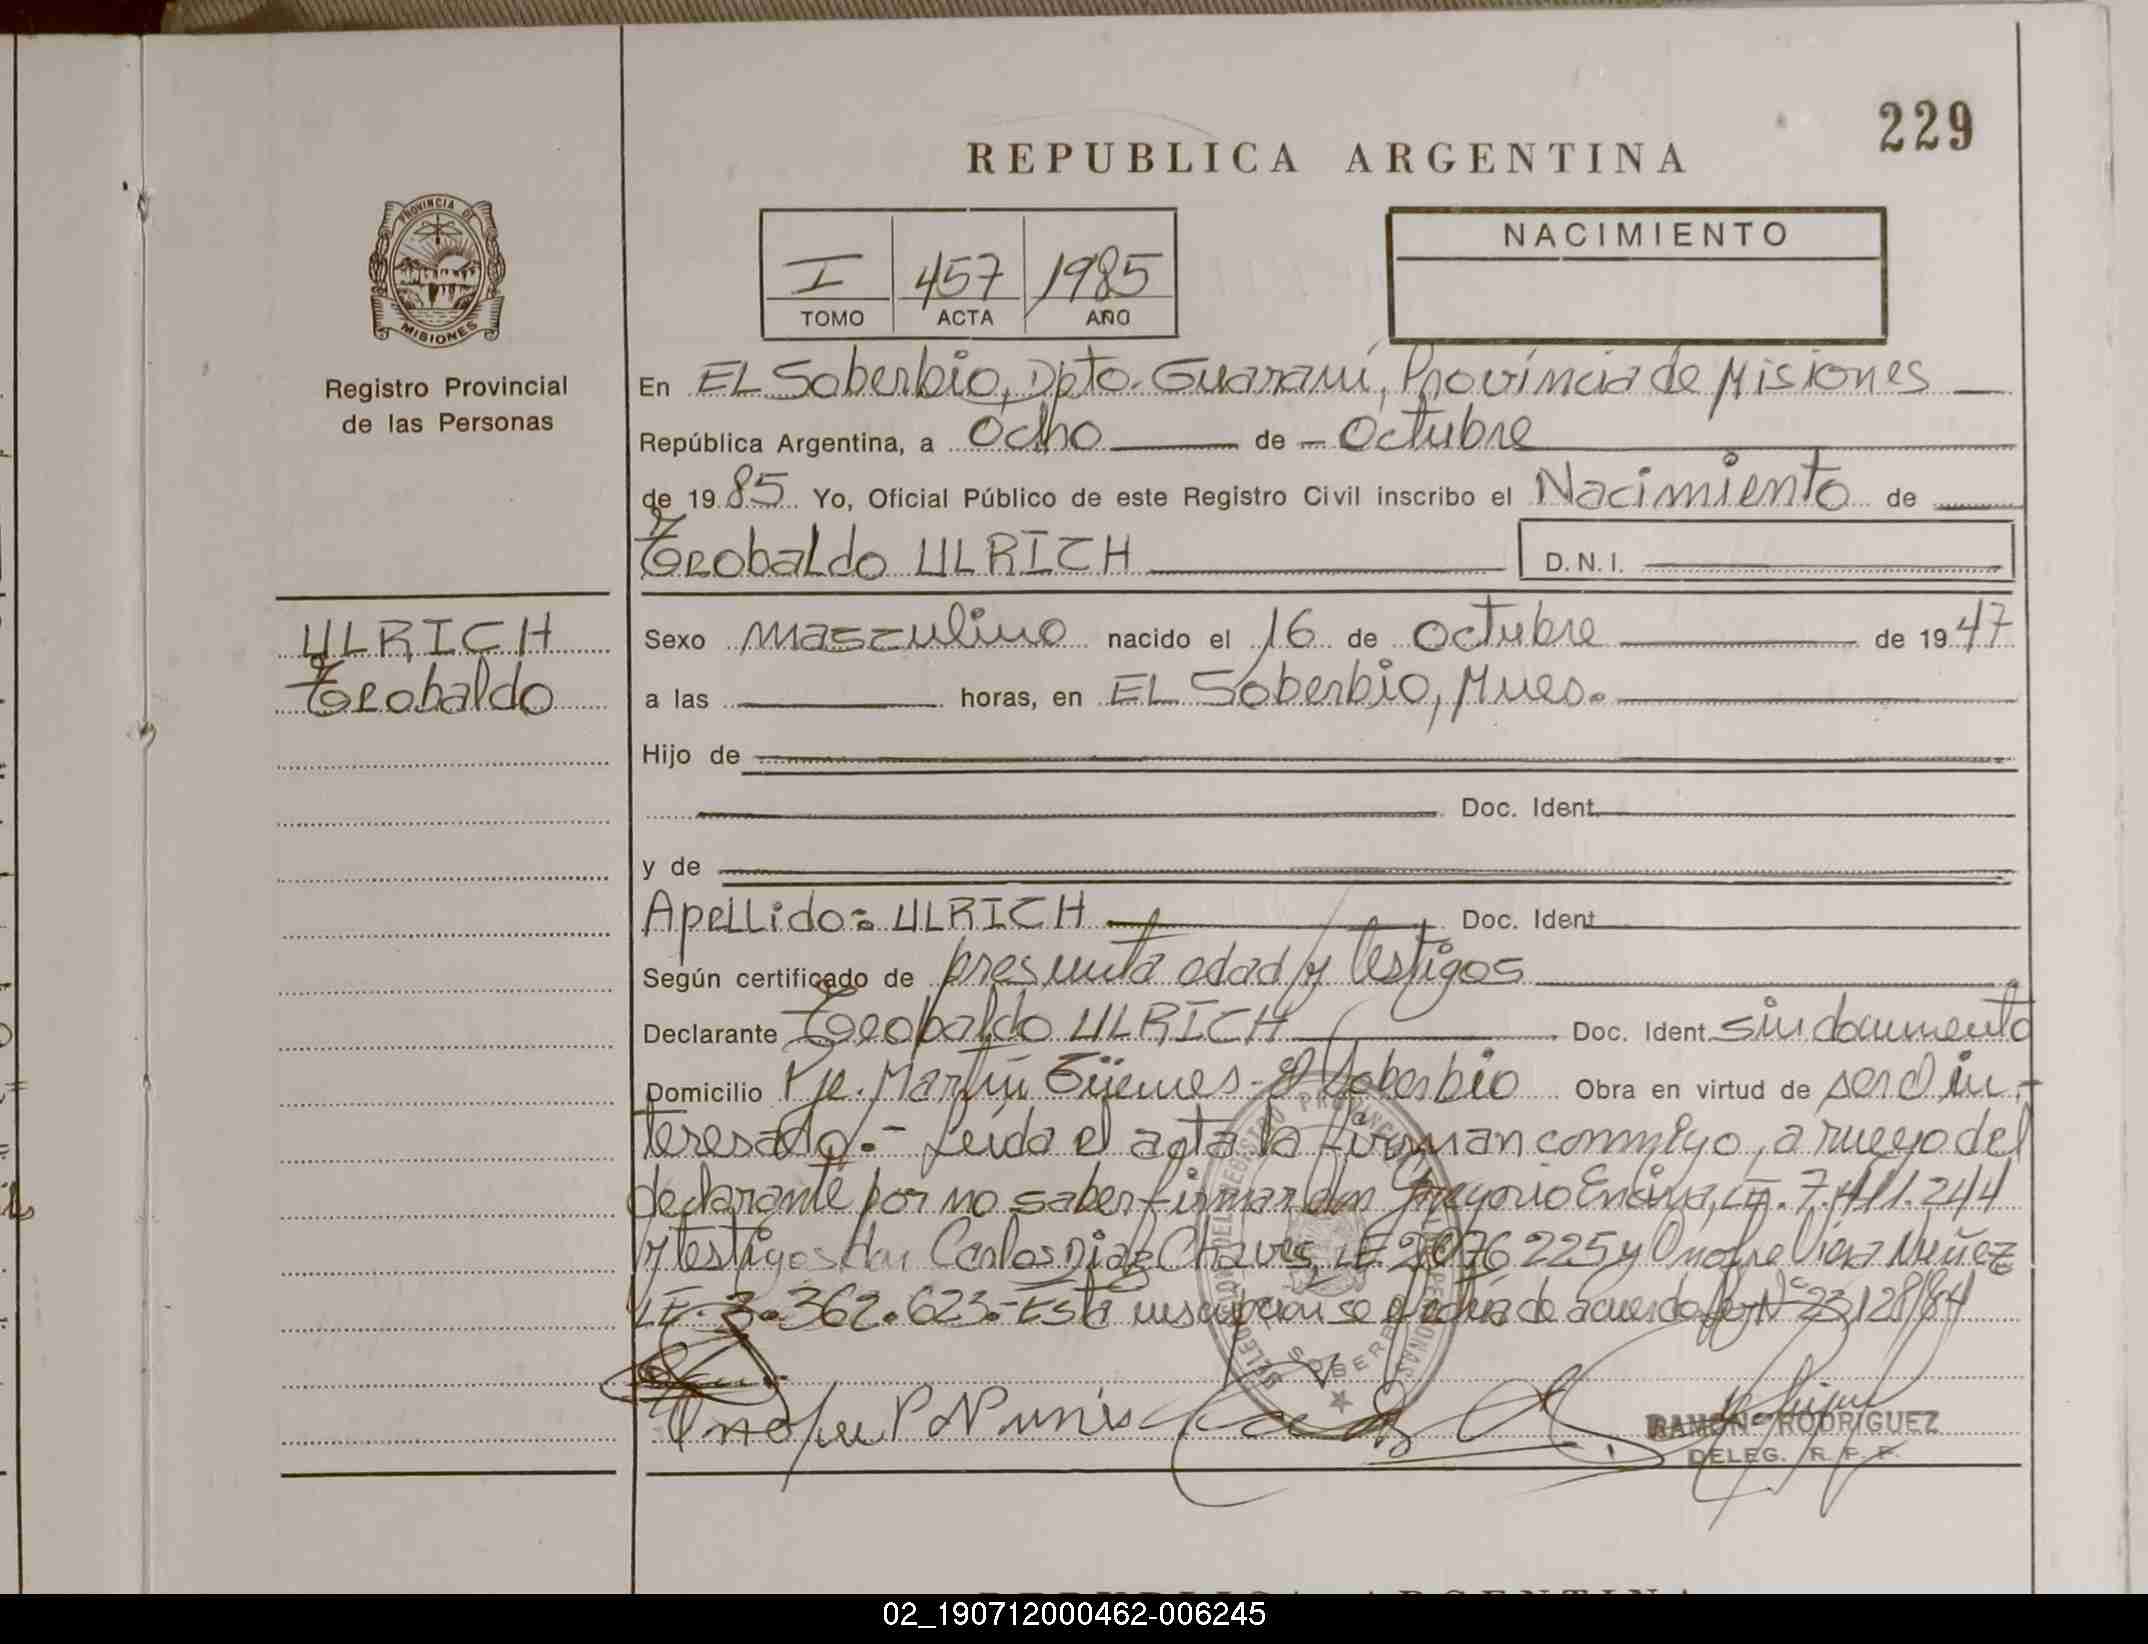 229
REPUBLICA ARGENTINA
PROVINCIA DE
MISIONES
Registro Provincial
de las Personas
I 457 1985
TOMO ACTA AÑO
NACIMIENTO
En EL Soberbio, Dpto. Guaraní, Provincia de Misiones
República Argentina, a Ocho de Octubre
de 1985 Yo, Oficial Público de este Registro Civil inscribo el Nacimiento de
Teobaldo ULRICH D.N.I.
ULRICH
Teobaldo
Sexo masculino nacido el 16 de Octubre de 1947
a las horas, en EL Soberbio, Mnes.
Hijo de
Doc. Ident.
y de
Apellido: ULRICH Doc. Ident
Según certificado de presunta edad y testigos
Declarante Teobaldo ULRICH Doc. Ident. sin documento
Domicilio Pje. Martín Güemes - El Soberbio Obra en virtud de ser el in-
teresado.- Leída el acta la firman conmigo, a ruego del
declarante por no saber firmar don Gregorio Encina, LE. 7.411.244
y testigos don Carlos Diaz Chaves, LE. 2076225 y Onofre Viera Nuñez
LE. 3.362.623.- Esta inscripción se efectúa de acuerdo Ley Nº 23128/84
RAMON RODRIGUEZ
DELEG. R. P. P.
REPUBLICA ARGENTINA
02_190712000462-006245